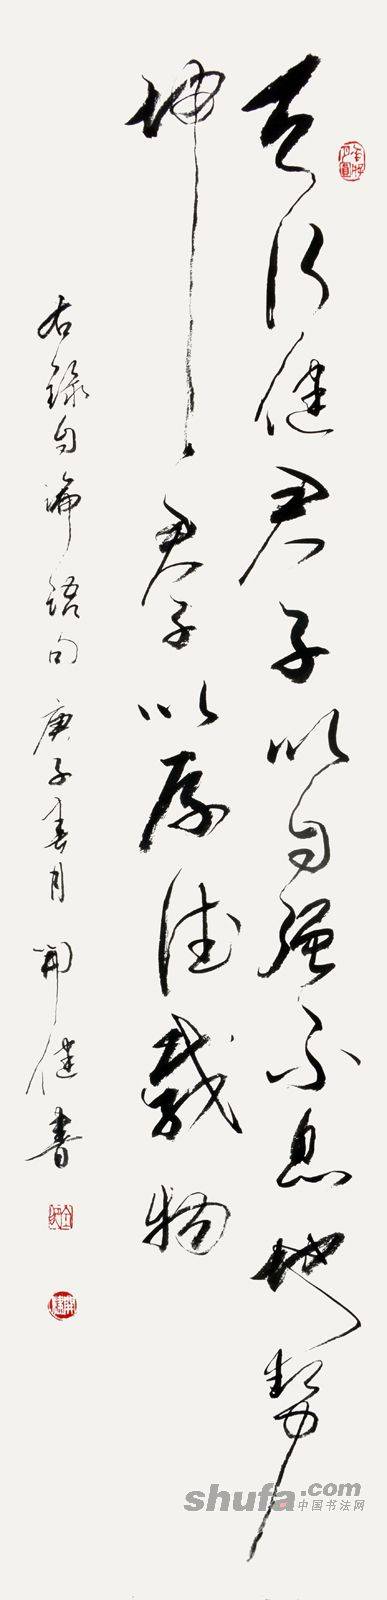 天行健君子以自强不息地势
坤君子以厚德载物
右录自论语句庚子春月开健书
shufa.com
中国书法网